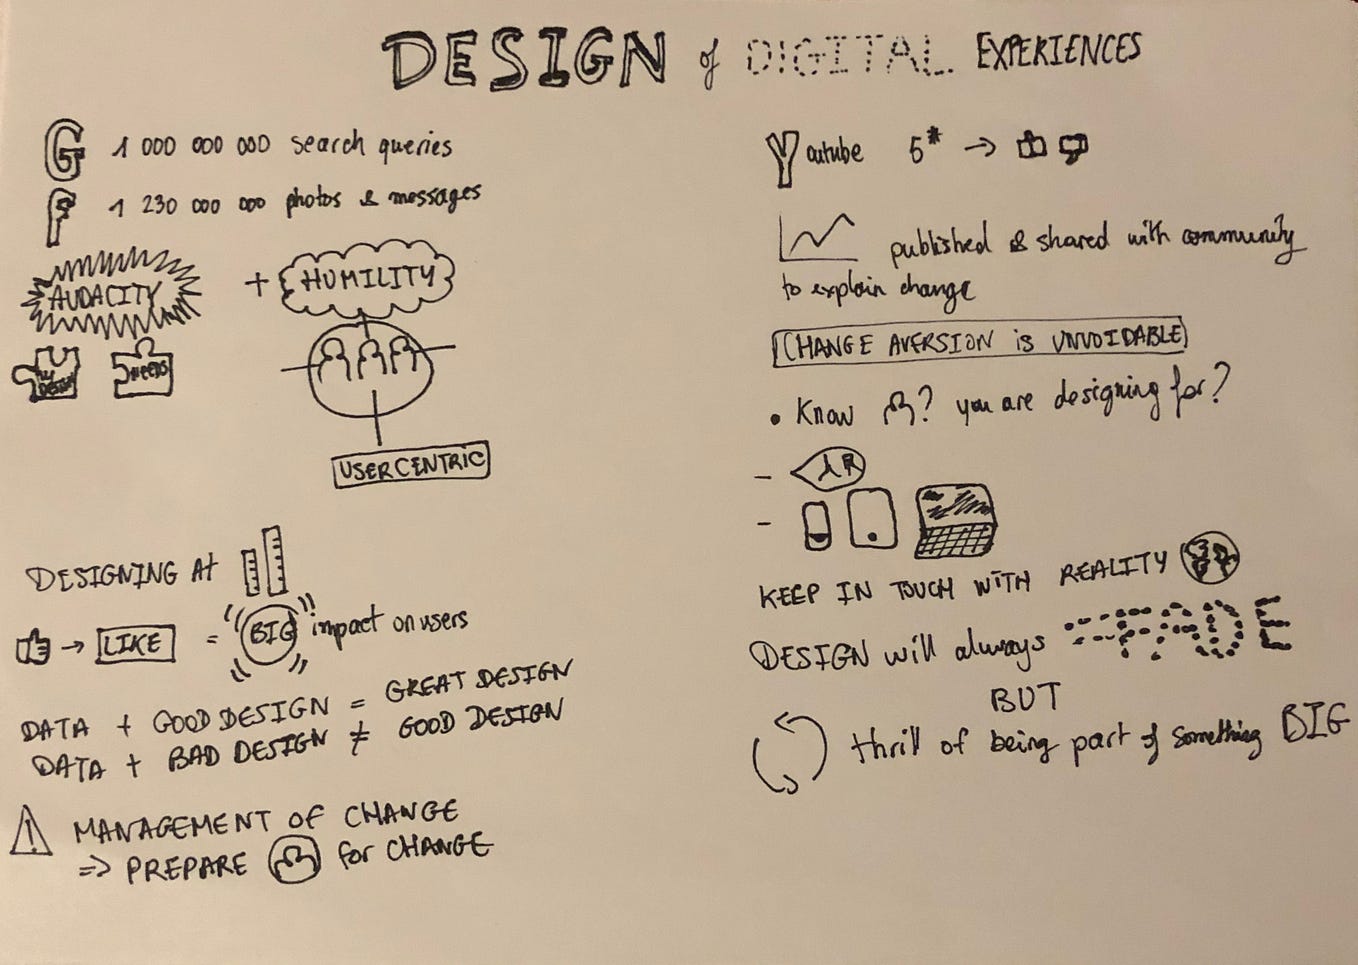 DESIGN of DIGITAL EXPERIENCES
G 1 000 000 000 search queries
F 1 230 000 000 photos & messages
AUDACITY + HUMILITY
My DESIGN NEEDS
USER CENTRIC
DESIGNING At
→ LIKE = BIG impact on users
DATA + GOOD DESIGN = GREAT DESIGN
DATA + BAD DESIGN ≠ GOOD DESIGN
! MANAGEMENT OF CHANGE
=> PREPARE for CHANGE
Youtube 5* →
published & shared with community
to explain change
CHANGE AVERSION is UNVOIDABLE
• Know ? you are designing for?
-
-
KEEP IN TOUCH WITH REALITY
DESIGN will always FADE
BUT
thrill of being part of something BIG